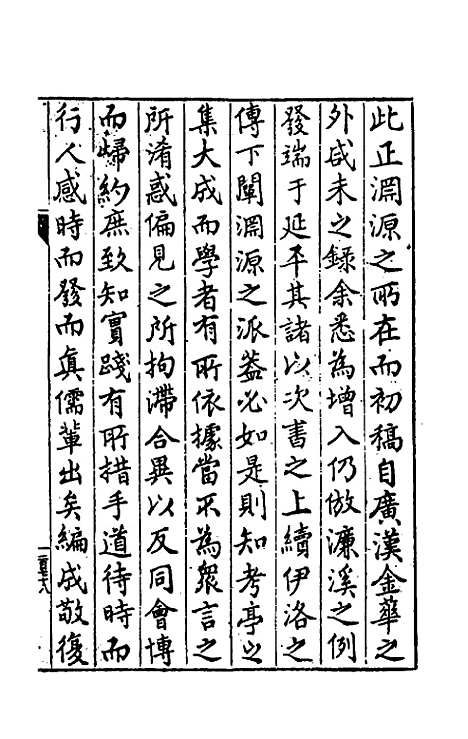 此正淵源之所在而初稿自廣漢金華之
外咸未之録余悉為增入仍倣濓溪之例
發端于延平其諸以次書之上續伊洛之
傳下闡淵源之派葢必如是則知考亭之
集大成而學者有所依據當不為衆言之
所淆惑偏見之所拘滯合異以反同會博
而歸約庶致知實踐有所措手道待時而
行人感時而發而真儒輩出矣編成敬復